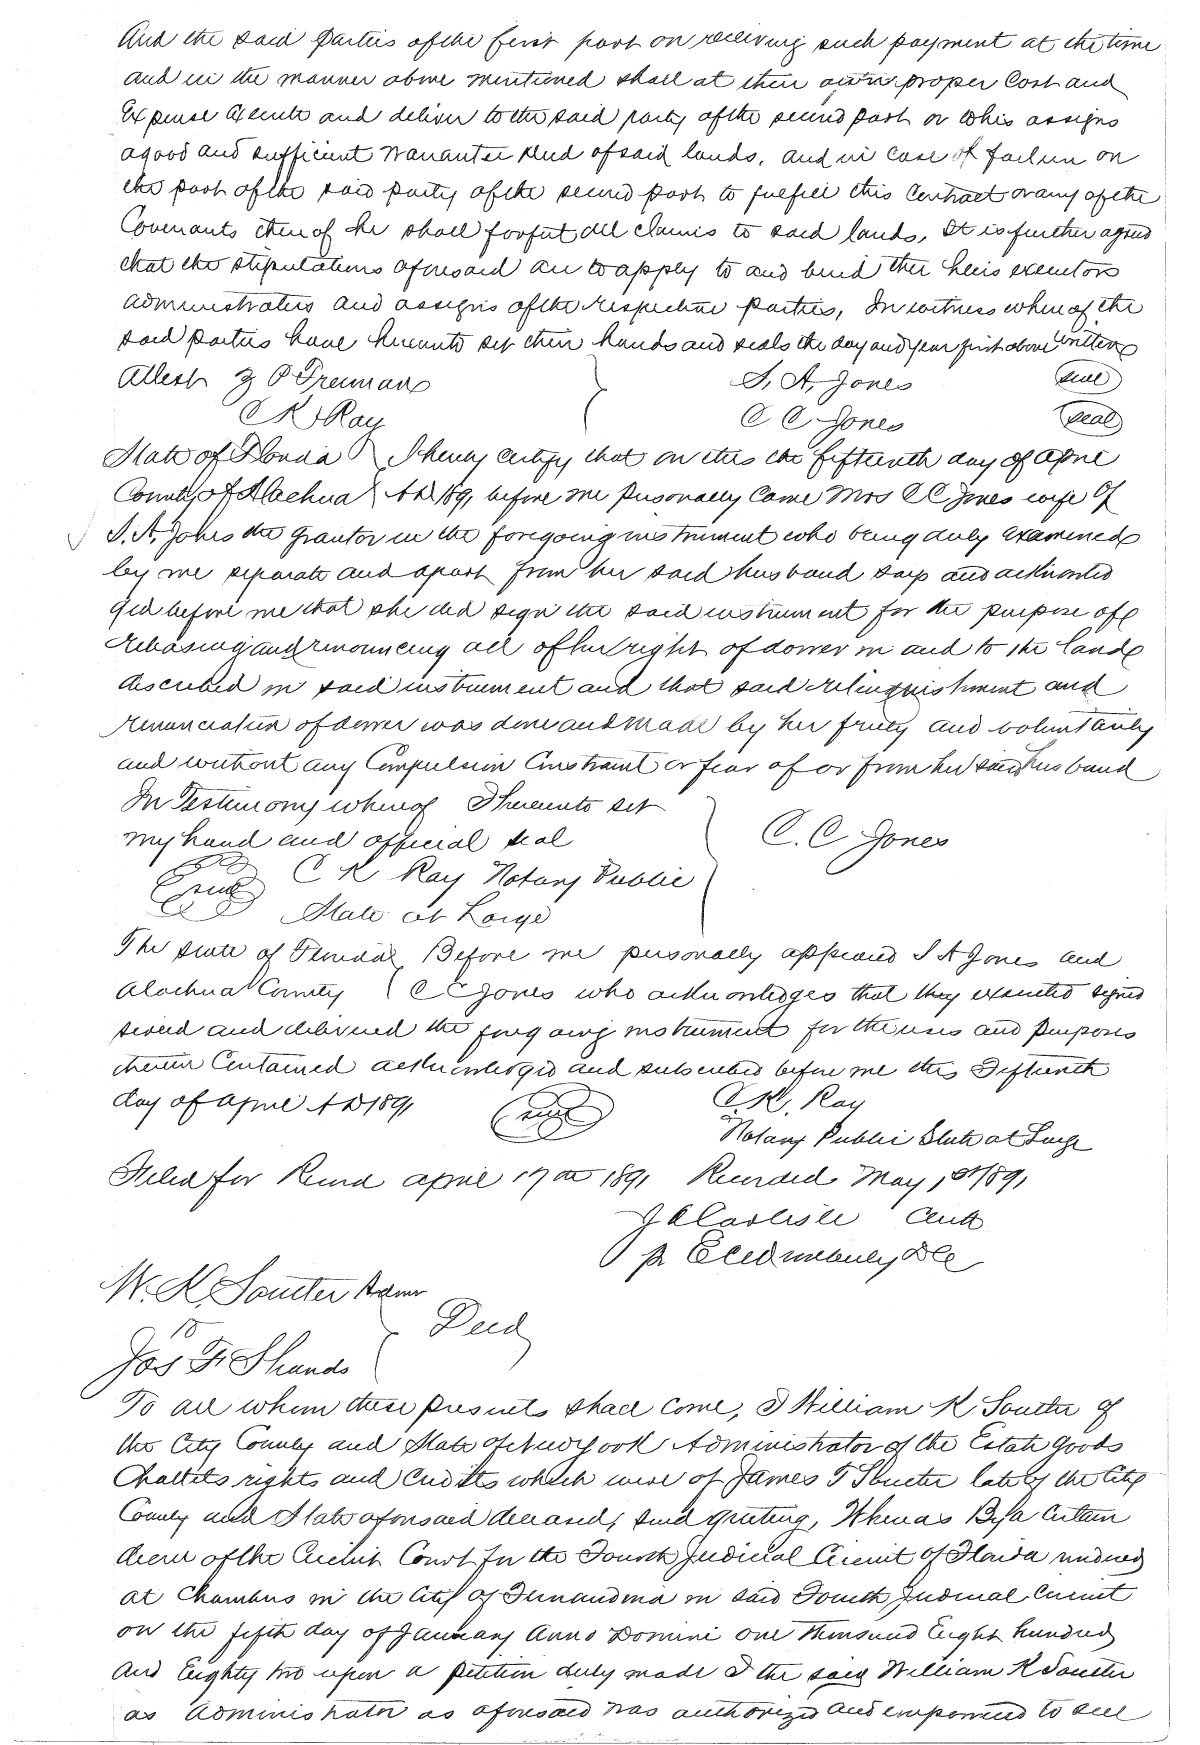 And the said Parties of the first part on receiving such payment at the time
and in the manner above mentioned shall at their own proper Cost and
Expense Execute and deliver to the said party of the second part or to his assigns
a good and sufficient Warrantee deed of said lands, and in case of failure on
the part of the said party of the second part to fulfill this Contract or any of the
Covenants thereof he shall forfeit all claims to said lands, It is further agreed
that the stipulations aforesaid are to apply to and bind the heirs executors
administrators and assigns of the respective Parties, In witness whereof the
said parties have hereunto set their hands and seals the day and year first above written
Attest Z P Freeman S. A. Jones seal
C K Ray C C Jones seal
State of Florida I hereby certify that on this the fifteenth day of April
County of Alachua A D 1891 before me personally came Mrs C C Jones wife of
S. A. Jones the grantor in the foregoing instrument who being duly examined
by me separate and apart from her said husband says and acknowled
ged before me that she did sign the said instrument for the purpose of
releasing and renouncing all of her right of dower in and to the lands
described in said instrument and that said relinquishment and
renunciation of dower was done and made by her freely and voluntarily
and without any Compulsion Constraint or fear of or from her said husband
In Testimony whereof I hereunto set
my hand and official seal C. C Jones
seal C K Ray Notary Public
State at Large
The State of Florida Before me personally appeared S A Jones and
Alachua County C C Jones who acknowledges that they executed signed
sealed and delivered the foregoing instrument for the uses and purposes
therein Contained acknowledged and subscribed before me this Fifteenth
day of April A D 1891 seal C. K. Ray
Notary Public State at Large
Filed for Record April 17th 1891 Recorded May 1st 1891
J A Carlisle Clerk
pr DC
W. K. Soutter Admr
to Deed
Jos F. Shands
To all whom these presents shall come, I William K Soutter of
the City County and State of New York Administrator of the Estate goods
Chattels rights and Credits which were of James T Soutter late of the City
County and State aforesaid deceased, send greeting, Whereas By a Certain
decree of the Circuit Court for the Fourth Judicial Circuit of Florida rendered
at Chambers in the City of Fernandina in said Fourth Judicial Circuit
on the fifth day of January Anno Domini one Thousand Eight hundred
And Eighty two upon a petition duly made I the said William K Soutter
as Administrator as aforesaid was authorized and empowered to sell